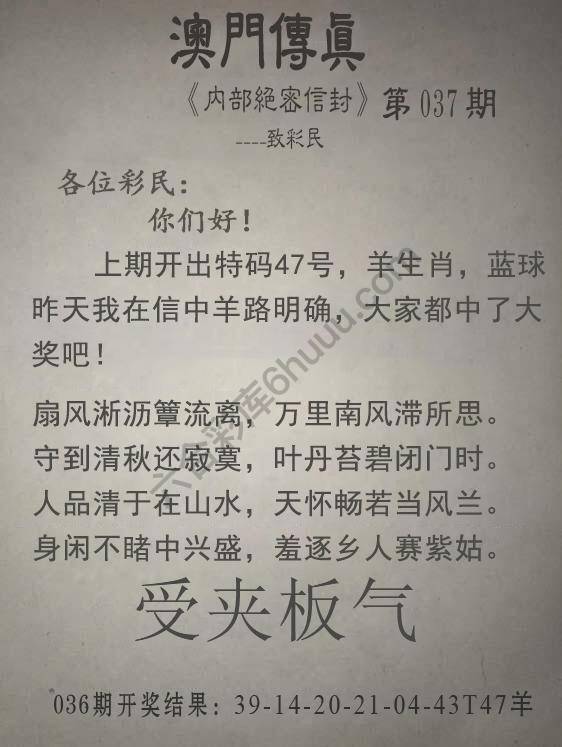 澳門傳真
《内部絕密信封》第037期
----致彩民
各位彩民：
你们好！
上期开出特码47号，羊生肖，蓝球
昨天我在信中羊路明确，大家都中了大
奖吧！
扇风淅沥簟流离，万里南风滞所思。
守到清秋还寂寞，叶丹苔碧闭门时。
人品清于在山水，天怀畅若当风兰。
身闲不睹中兴盛，羞逐乡人赛紫姑。
受夹板气
036期开奖结果：39-14-20-21-04-43T47羊
六合彩库6huuu.com